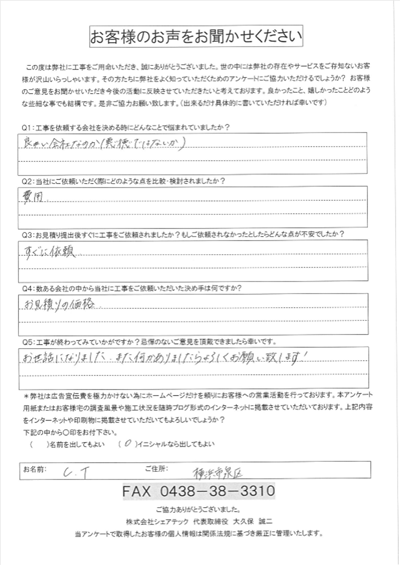 お客様のお声をお聞かせください
この度は弊社に工事をご用命いただき、誠にありがとうございました。世の中には弊社の存在やサービスをご存知ないお客
様が沢山いらっしゃいます。その方たちに弊社をよく知っていただくためのアンケートにご協力いただけるでしょうか? お客様
のご意見をお聞かせいただき今後の活動に反映させていただきたいと考えております。良かったこと、嬉しかったことどのよう
な些細な事でも結構です。是非ご協力お願い致します。(出来るだけ具体的に書いていただければ幸いです)
Q1:工事を依頼する会社を決める時にどんなことで悩まれていましたか?
良い会社なのか(悪徳ではないか)
Q2:当社にご依頼いただく際にどのような点を比較・検討されましたか?
費用
Q3:お見積り提出後すぐに工事をご依頼されましたか?もしご依頼されなかったとしたらどんな点が不安でしたか?
すぐに依頼
Q4:数ある会社の中から当社に工事をご依頼いただいた決め手は何ですか?
お見積りの価格
Q5:工事が終わってみていかがですか?忌憚のないご意見を頂戴できましたら幸いです。
お世話になりました。また何かありましたらよろしくお願い致します!
*弊社は広告宣伝費を極力かけない為にホームページだけを頼りにお客様への営業活動を行っております。本アンケート
用紙またはお客様宅の調査風景や施工状況を随時ブログ形式のインターネットに掲載させていただいております。上記内容
をインターネットや印刷物に掲載させていただいてもよろしいでしょうか?
下記の中から〇印をお付下さい。
( )名前を出してもよい (〇)イニシャルなら出してもよい
お名前: C.T ご住所: 横浜市泉区
FAX 0438-38-3310
ご協力ありがとうございました。
株式会社シェアテック 代表取締役 大久保 誠二
当アンケートで取得したお客様の個人情報は関係法規に基づき厳正に管理いたします。